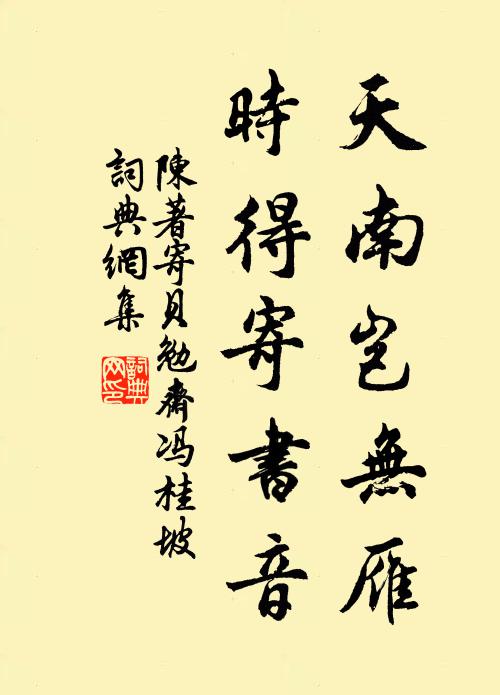 天南豈無雁
時得寄書音
陳著寄貝勉齋馮桂坡
詞典網集
詞典网印